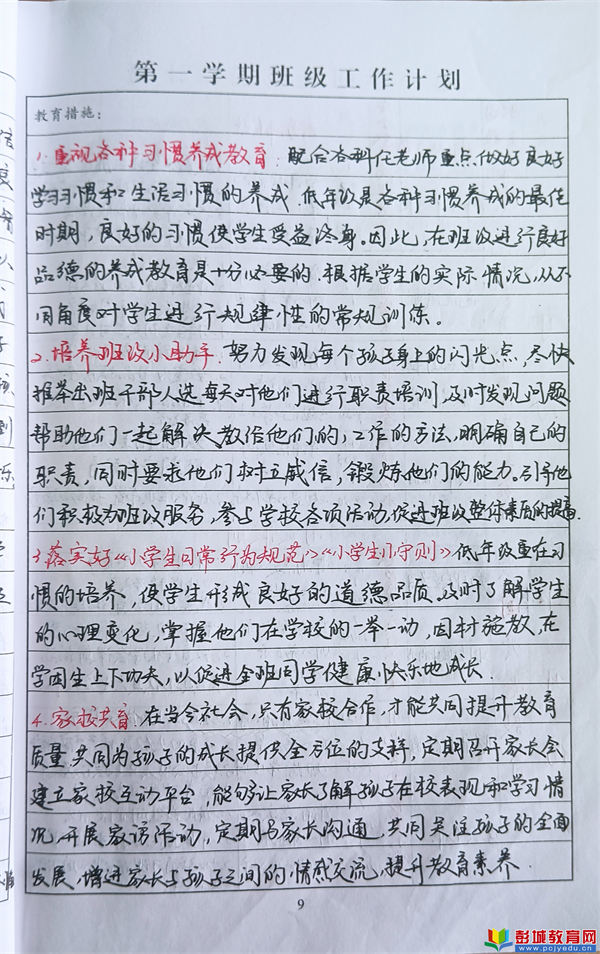 第一学期班级工作计划
教育措施:
1.重视各种习惯养成教育.配合各科任老师重点做好良好
学习习惯和生活习惯的养成.低年级是各种习惯养成的最佳
时期，良好的习惯使学生受益终身。因此，在班级进行良好
品德的养成教育是十分必要的.根据学生的实际情况,从不
同角度对学生进行规律性的常规训练。
2.培养班级小助手.努力发现每个孩子身上的闪光点,尽快
推举出班干部人选每天对他们进行职责培训,及时发现问题
帮助他们一起解决教给他们的,工作的方法,明确自己的
职责,同时要求他们树立威信,锻炼他们的能力。引导他
们积极为班级服务,参与学校各项活动,促进班级整体素质的提高.
3.落实好《小学生日常行为规范》《小学生小守则》低年级重在习
惯的培养,使学生形成良好的道德品质。及时了解学生
的心理变化,掌握他们在学校的一举一动,因材施教,在
学困生上下功夫,以促进全班同学健康快乐地成长.
4.家校共育.在当今社会,只有家校合作,才能共同提升教育
质量共同为孩子的成长提供全方位的支持,定期召开家长会
建立家校互动平台,能够让家长了解孩子在校表现和学习情
况,开展家访活动,定期与家长沟通,共同关注孩子的全面
发展,增进家长与孩子之间的情感交流,提升教育素养.
9
彭城教育网
www.pcjyedu.cn